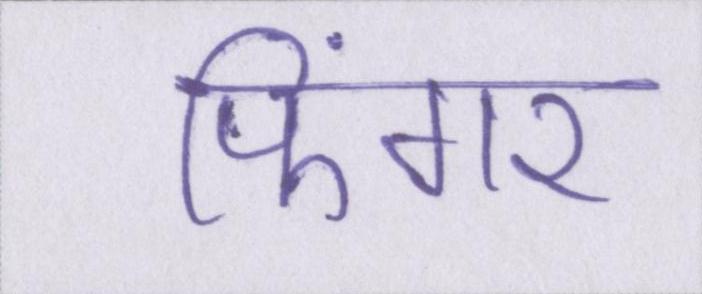 फिंगर